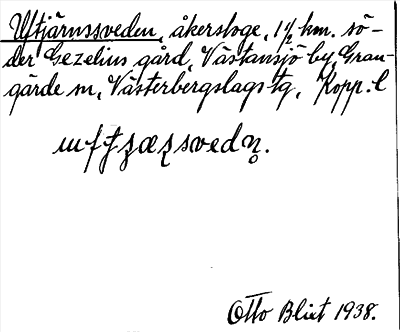 Uftjärnssveden, åkersloge, 1½ km. sö-
der Gezelius gård, Västansjö by, Gran-
gärde sn, Västerbergslags tg, Kopp. l
Otto Blixt 1938.